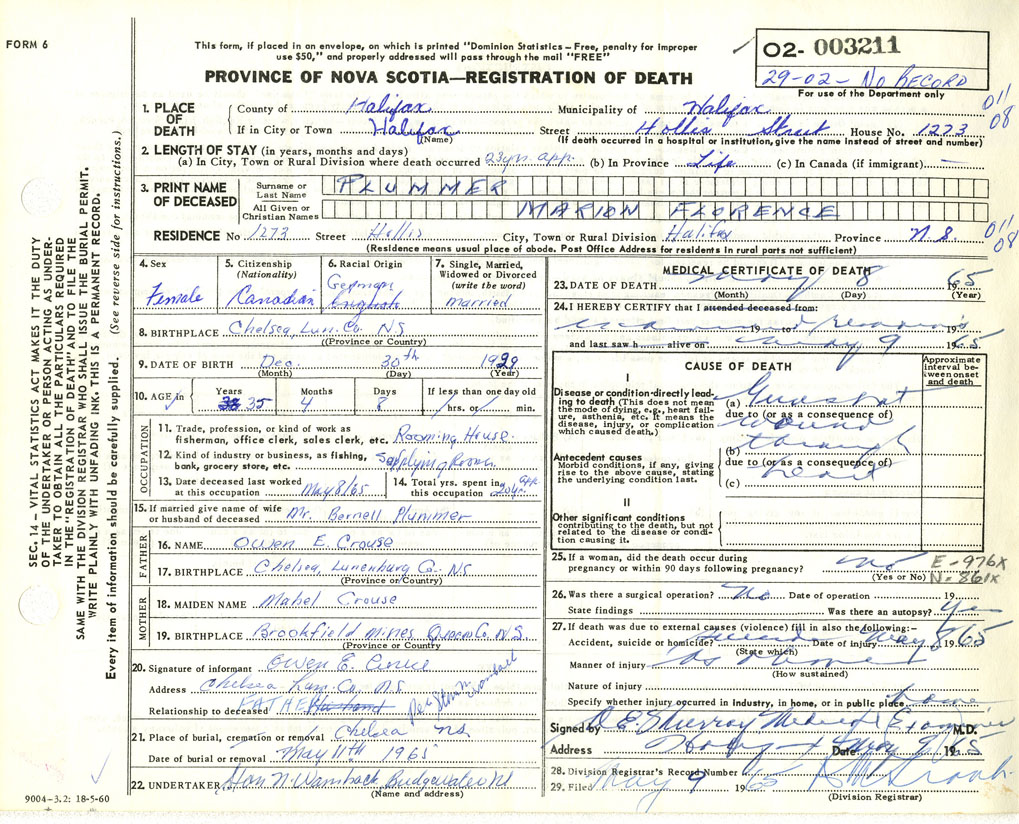 FORM 6
This form, if placed in an envelope, on which is printed "Dominion Statistics – Free, penalty for improper
use $50," and properly addressed will pass through the mail "FREE"
PROVINCE OF NOVA SCOTIA—REGISTRATION OF DEATH
02- 003211
29-02 – No Record
For use of the Department only
011
08
1. PLACE OF DEATH
County of Halifax Municipality of Halifax
If in City or Town Halifax Street Hollis Street House No. 1273
(Name) (If death occurred in a hospital or institution, give the name instead of street and number)
2. LENGTH OF STAY (in years, months and days)
(a) In City, Town or Rural Division where death occurred 23 yrs. app. (b) In Province Life (c) In Canada (if immigrant) —
3. PRINT NAME OF DECEASED
Surname or Last Name PLUMMER
All Given or Christian Names MARION FLORENCE
RESIDENCE No 1273 Street Hollis City, Town or Rural Division Halifax Province N.S.
011
08
(Residence means usual place of abode. Post Office Address for residents in rural parts not sufficient)
4. Sex Female
5. Citizenship (Nationality) Canadian
6. Racial Origin German English
7. Single, Married, Widowed or Divorced (write the word) married
8. BIRTHPLACE Chelsea, Lun. Co. NS
(Province or Country)
9. DATE OF BIRTH Dec. 30th 1929
(Month) (Day) (Year)
10. AGE in Years 38 35 Months 4 Days If less than one day old hrs. or min.
OCCUPATION
11. Trade, profession, or kind of work as
fisherman, office clerk, sales clerk, etc. Rooming House.
12. Kind of industry or business, as fishing,
bank, grocery store, etc. Supplying Rooms.
13. Date deceased last worked at this occupation May 8/65
14. Total yrs. spent in this occupation 20 yrs. app.
15. If married give name of wife
or husband of deceased Mr. Bernell Plummer
FATHER
16. NAME Owen E. Crouse
17. BIRTHPLACE Chelsea, Lunenburg Co. NS
(Province or Country)
MOTHER
18. MAIDEN NAME Mabel Crouse
19. BIRTHPLACE Brookfield Mines Queens Co. N.S.
(Province or Country)
20. Signature of informant Owen E Crouse
Address Chelsea Lun. Co. N.S.
Relationship to deceased FATHER Husband
21. Place of burial, cremation or removal Chelsea NS
Date of burial or removal May 11th 1965
22. UNDERTAKER Bridgewater NS
(Name and address)
9004–3.2: 18-5-60
MEDICAL CERTIFICATE OF DEATH
23. DATE OF DEATH May 8 1965
(Month) (Day) (Year)
24. I HEREBY CERTIFY that I attended deceased from:
19 to 19
and last saw h alive on May 9 1965
CAUSE OF DEATH
Approximate interval between onset and death
I
Disease or condition directly leading to death (This does not mean the mode of dying, e.g., heart failure, asthenia, etc. It means the disease, injury, or complication which caused death.)
(a) Gunshot
due to (or as a consequence of)
wound
(b) through
due to (or as a consequence of)
(c) heart
Antecedent causes
Morbid conditions, if any, giving rise to the above cause, stating the underlying condition last.
II
Other significant conditions
contributing to the death, but not related to the disease or condition causing it.
25. If a woman, did the death occur during
pregnancy or within 90 days following pregnancy? no
(Yes or No)
E-976X
N-861X
26. Was there a surgical operation? No Date of operation 19
State findings Was there an autopsy? Yes
27. If death was due to external causes (violence) fill in also the following:–
Accident, suicide or homicide? Date of injury May 8 1965
(State which)
Manner of injury As above
(How sustained)
Nature of injury
Specify whether injury occurred in Industry, in home, or in public place home
Signed by D E Murray Medical Examiner M.D.
Address Date May 9 1965
28. Division Registrar's Record Number
29. Filed May 9 1965
(Division Registrar)
SEC. 14 – VITAL STATISTICS ACT MAKES IT THE DUTY
OF THE UNDERTAKER OR PERSON ACTING AS UNDER-
TAKER TO OBTAIN ALL THE PARTICULARS REQUIRED
IN THE "REGISTRATION OF DEATH" AND TO FILE THE
SAME WITH THE DIVISION REGISTRAR WHO SHALL ISSUE THE BURIAL PERMIT.
WRITE PLAINLY WITH UNFADING INK. THIS IS A PERMANENT RECORD.
Every item of information should be carefully supplied. (See reverse side for instructions.)